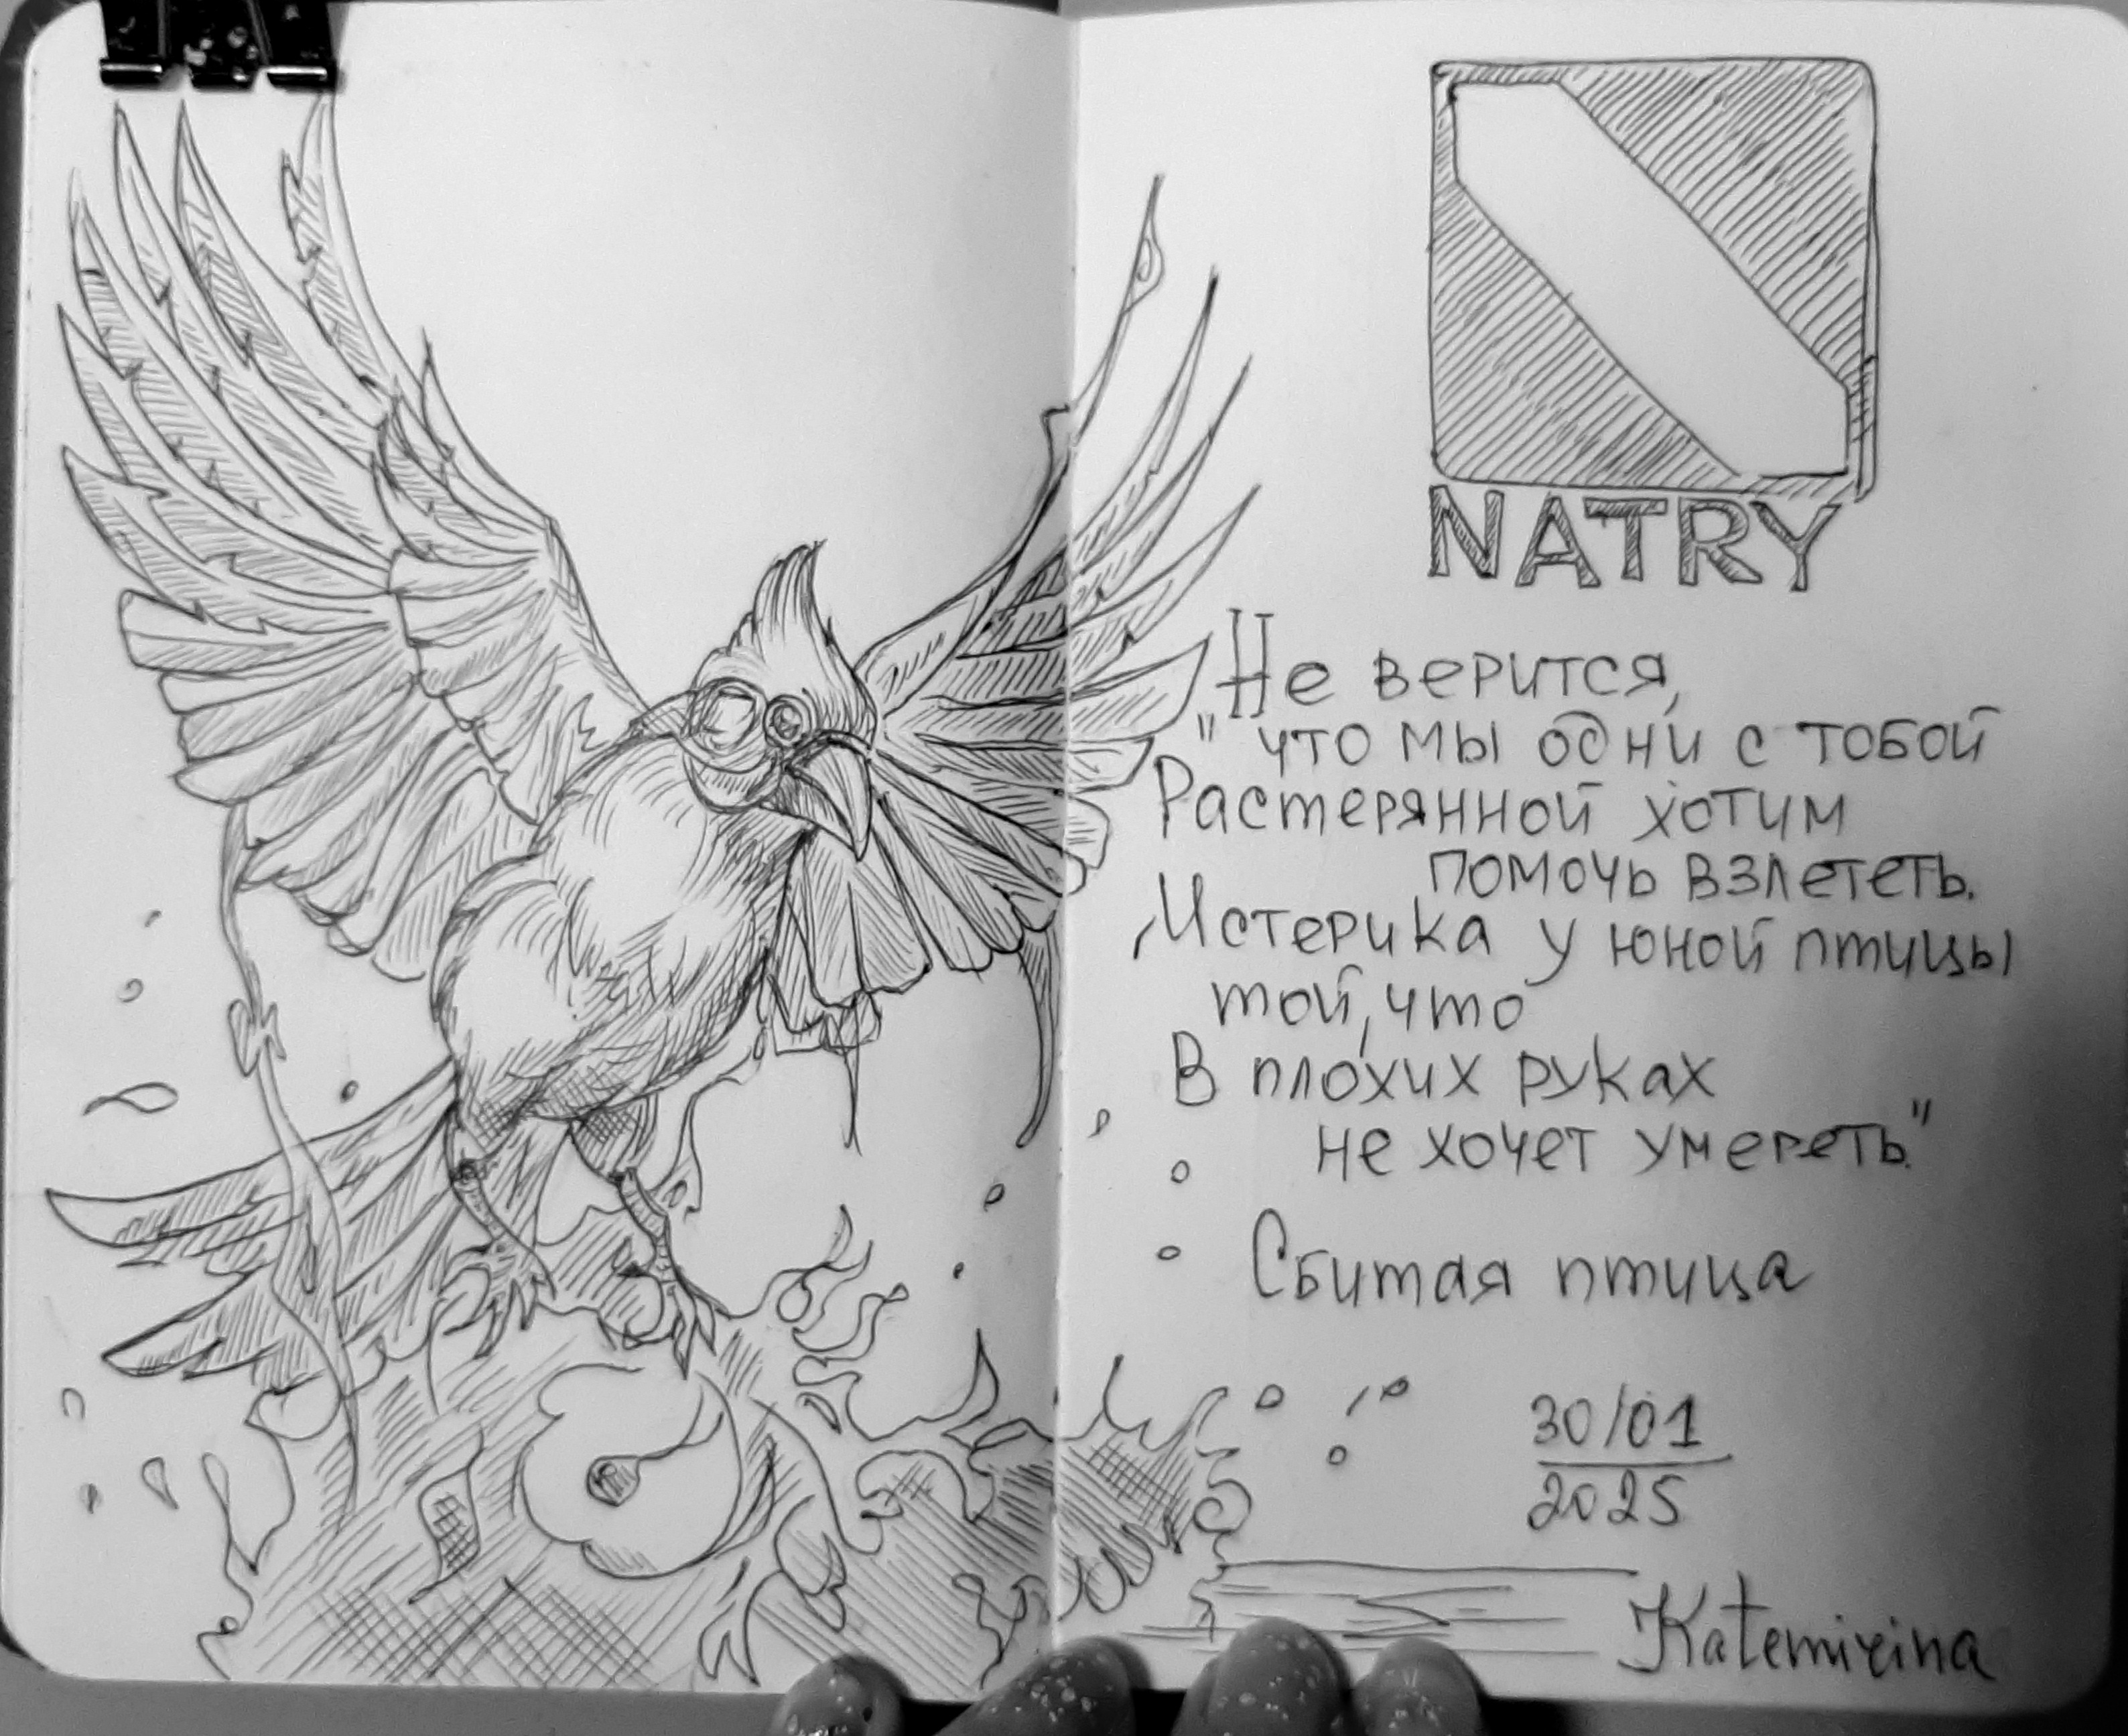 NATRY
Не верится,
" что мы одни с тобой
Растерянной хотим
помочь взлететь.
Истерика у юной птицы
той, что
В плохих руках
не хочет умереть."
Сбитая птица
30/01
2025
Katemirina